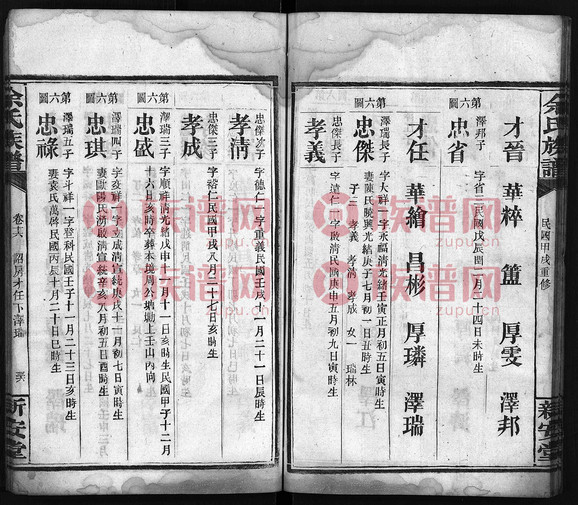 余氏族譜
民國甲戌重修
新安堂
才晉 華粹 簠 厚雯 澤邦
第六圖
澤邦子
忠省 字省三民國戊辰閏二月二十四日未時生
才任 華繪 昌彬 厚璘 澤瑞
第六圖
澤瑞長子
忠傑 字大祥一字永福清光緒壬寅正月初五日寅時生
妻陳氏曉興光緒庚子七月初一日丑時生
子三 孝義 孝清 孝成 女一 瑞林
忠傑長子
孝義 字遠仁一字啟清民國庚申五月初九日寅時生
忠傑次子
孝清 字德仁一字重義民國壬戌十一月二十一日辰時生
忠傑三子
孝成 字裕仁民國甲戌八月二十七日亥時生
第六圖
澤瑞三子
忠盛 字順祥清光緒戊申十一月十一日亥時生民國甲子十二月
十六日亥時卒葬本境周公塘塘上壬山丙向
第六圖
澤瑞四子
忠琪 字亥祥一字立成清宣統庚戌十一月初七日寅時生
妻歐陽氏湧啟清宣統辛亥八月初五日酉時生
第六圖
澤瑞五子
忠祿 字斗祥一字登科民國壬子十一月二十三日亥時生
妻袁氏萬啟民國丙辰十月二十日巳時生
余氏族譜
卷十六 韶房才任下澤瑞
新安堂
族譜网
zupu.cn